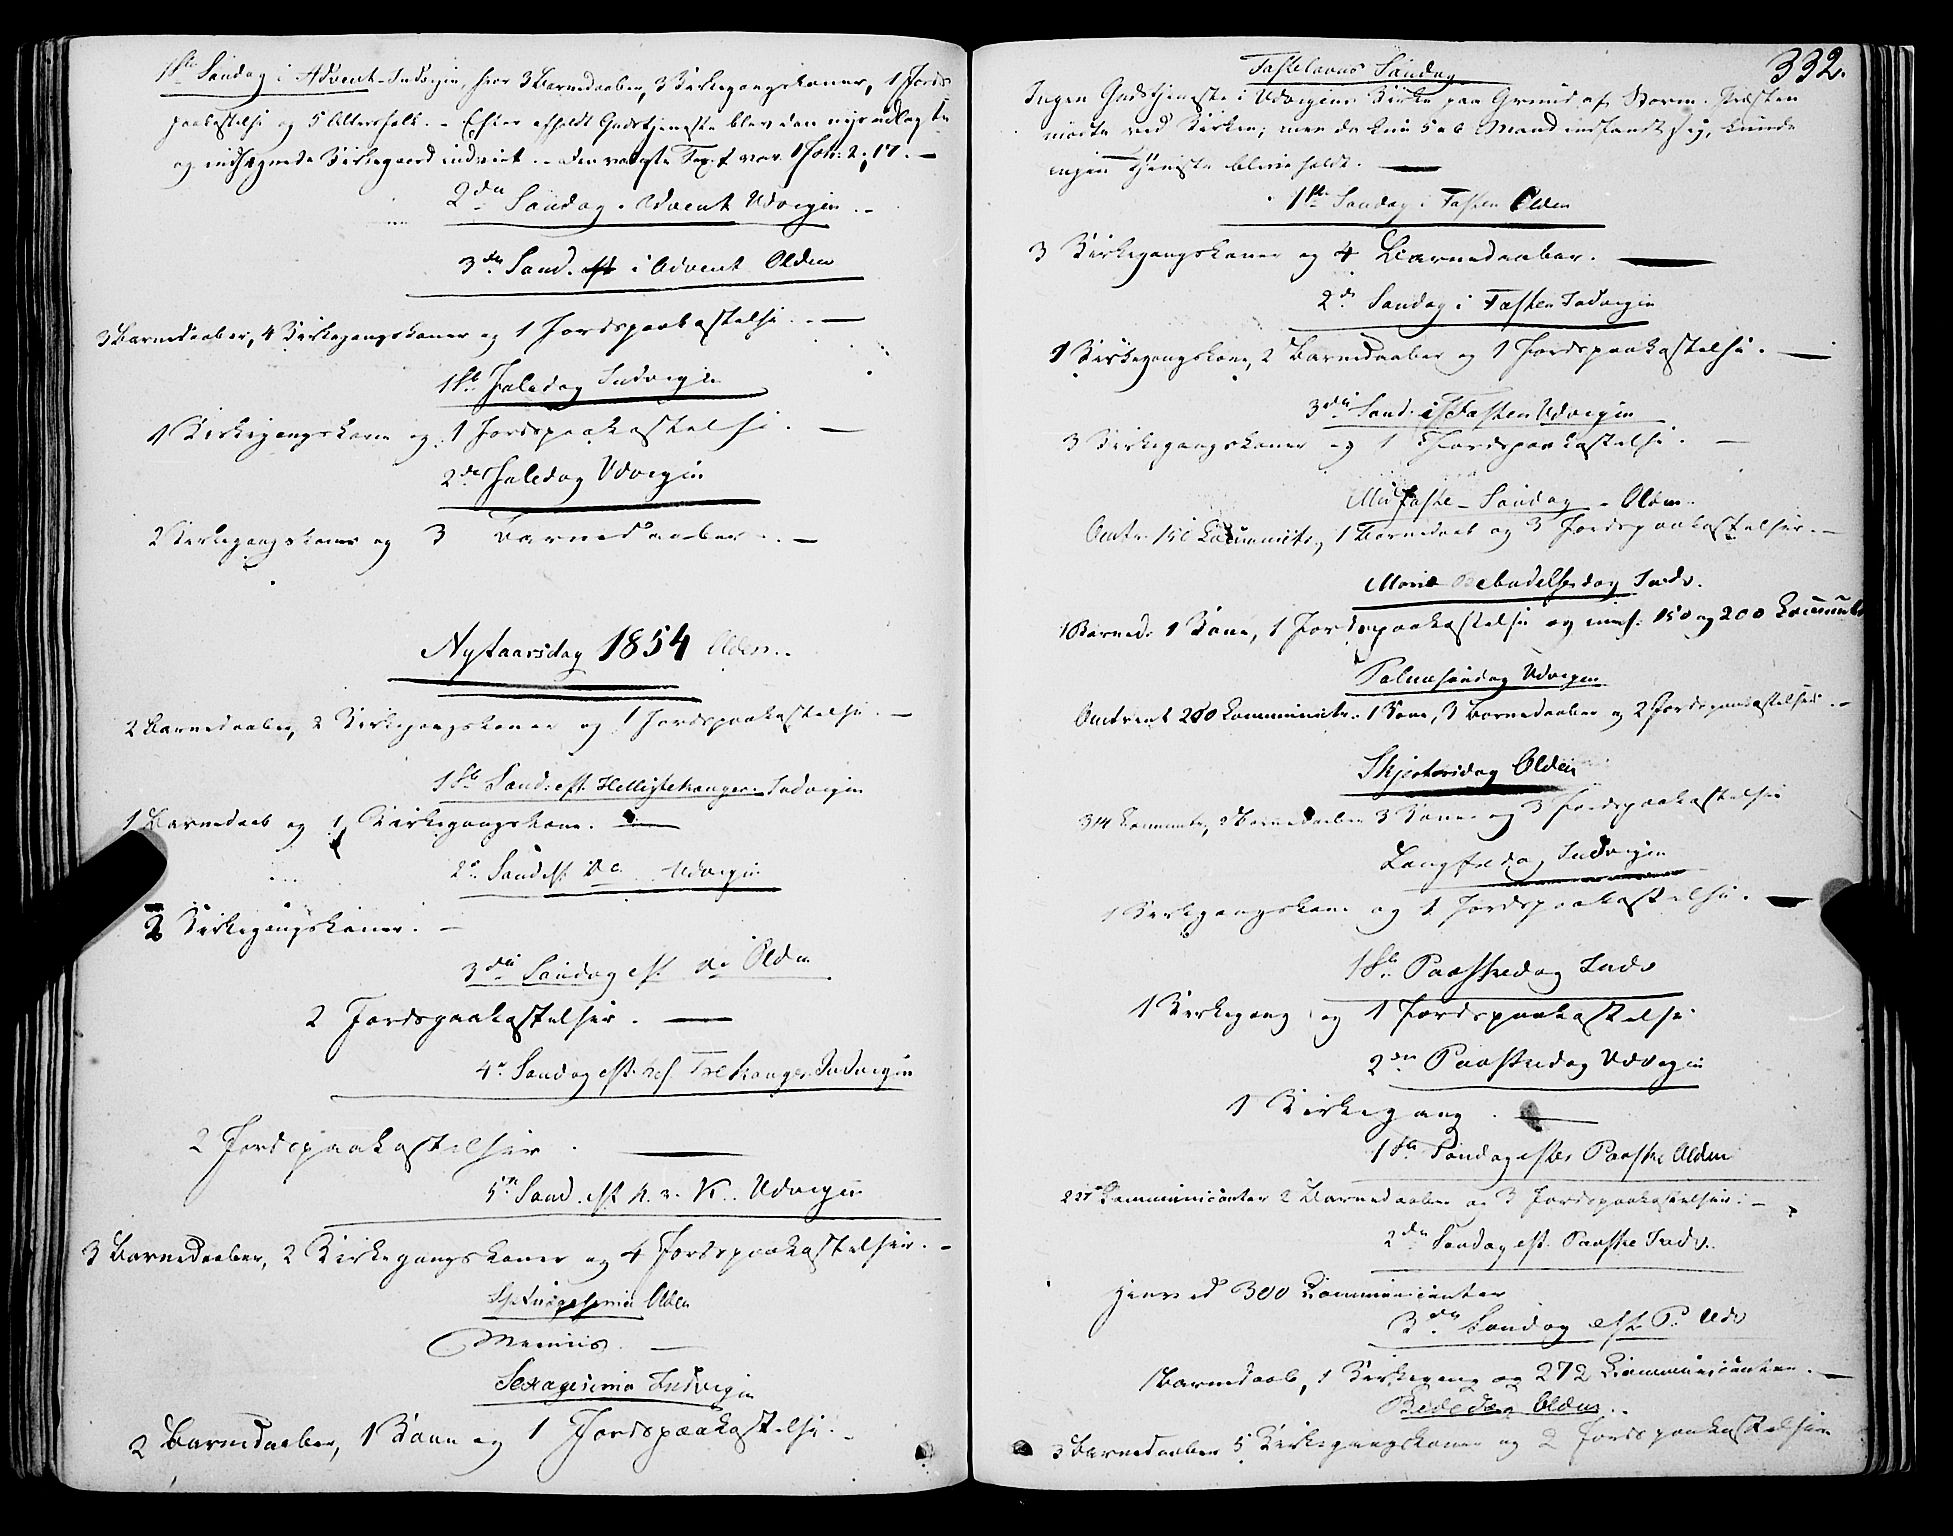 1ste Søndag i Advent Indvigen, hvor 3 Barnedaaber, 3 Kirkegangskoner, 1 Jords
paakastelse og 5 Altersfolk. - Efter afholdt Gudstjeneste blev den nys udlagte
og indhegnede Kirkegaard indviet. - Den valgte Text var 1 Joh: 2, 17. -
2den Søndag i Advent Udvigen. -
3die Sønd. i Advent Olden
3 Barnedaaber, 4 Kirkegangskoner og 1 Jordspaakastelse. -
1ste Juledag Indvigen
1 Kirkegangskone og 1 Jordspaakastelse. -
2den Juledag Udvigen
2 Kirkegangskoner og 3 Barnedaaber. -
Nytaarsdag 1854 Olden. -
2 Barnedaaber, 2 Kirkegangskoner og 1 Jordspaakastelse. -
1ste Sønd. eft. Helligtrekonger Indvigen
1 Barnedaab og 1 Kirkegangskone. -
2d Sønd eft. Do Udvigen
2 Kirkegangskoner. -
3die Søndag eft. do Olden
2 Jordspaakastelser. -
4de Søndag eft. hel Trekonger Indvigen
2 Jordspaakastelser. -
5te Sønd. eft. h. 3. K. Udvigen
3 Barnedaaber, 2 Kirkegangskoner og 4 Jordspaakastelser. -
Septuagesima Olden
Sexagesima Indvigen
2 Barnedaaber, 1 Kone og 1 Jordspaakastelse. -
332.
Fastelavns Søndag
Ingen Gudstjeneste i Udvigens Kirke paa Grund af Storm. Præsten
mødte ved Kirken; men da kun 5 a 6 Mand indfandt sig, kunde
ingen Tjeneste blive holdt. -
1ste Søndag i Fasten Olden
3 Kirkegangskoner og 4 Barnedaaber. -
2d Søndag i Fasten Indvigen
1 Kirkegangskone, 2 Barnedaaber og 1 Jordspaakastelse. -
3die Sønd. i Fasten Udvigen
3 Kirkegangskoner og 1 Jordspaakastelse. -
Midfaste-Søndag - Olden
Omtr. 150 Communik., 1 Barnedaab og 3 Jordspaakastelser. -
Mariæ Bebudelsesdag Indv.
1 Barned. 1 Kone, 1 Jordspaakastelse og mell. 150 og 200 Communik
Palmesøndag Udvigen
Omtrent 200 Kommunik. 1 Kone, 3 Barnedaaber og 2 Jordspaakastelser. -
Skjertorsdag Olden
314 Communik., 2 Barnedaaber 3 Koner og 3 Jordspaakastelser
Langfredag Indvigen
1 Kirkegangskone og 1 Jordspaakastelse. -
1ste Paaskedag Indv
1 Kirkegang og 1 Jordspaakastelse
2den Paaskedag Udvigen
1 Kirkegang. -
1ste Søndag efter Paaske Olden
Communicanter 2 Barnedaaber og 3 Jordspaakastelser. -
2den Søndag eft. Paaske Indv.
henved 300 Communicanter
3die Søndag eft P. Udv
1 Barnedaab, 1 Kirkegang og 272 Communicanter. -
Bededag Olden. -
3 Barnedaaber 5 Kirkegangskoner og 2 Jordspaakastelser